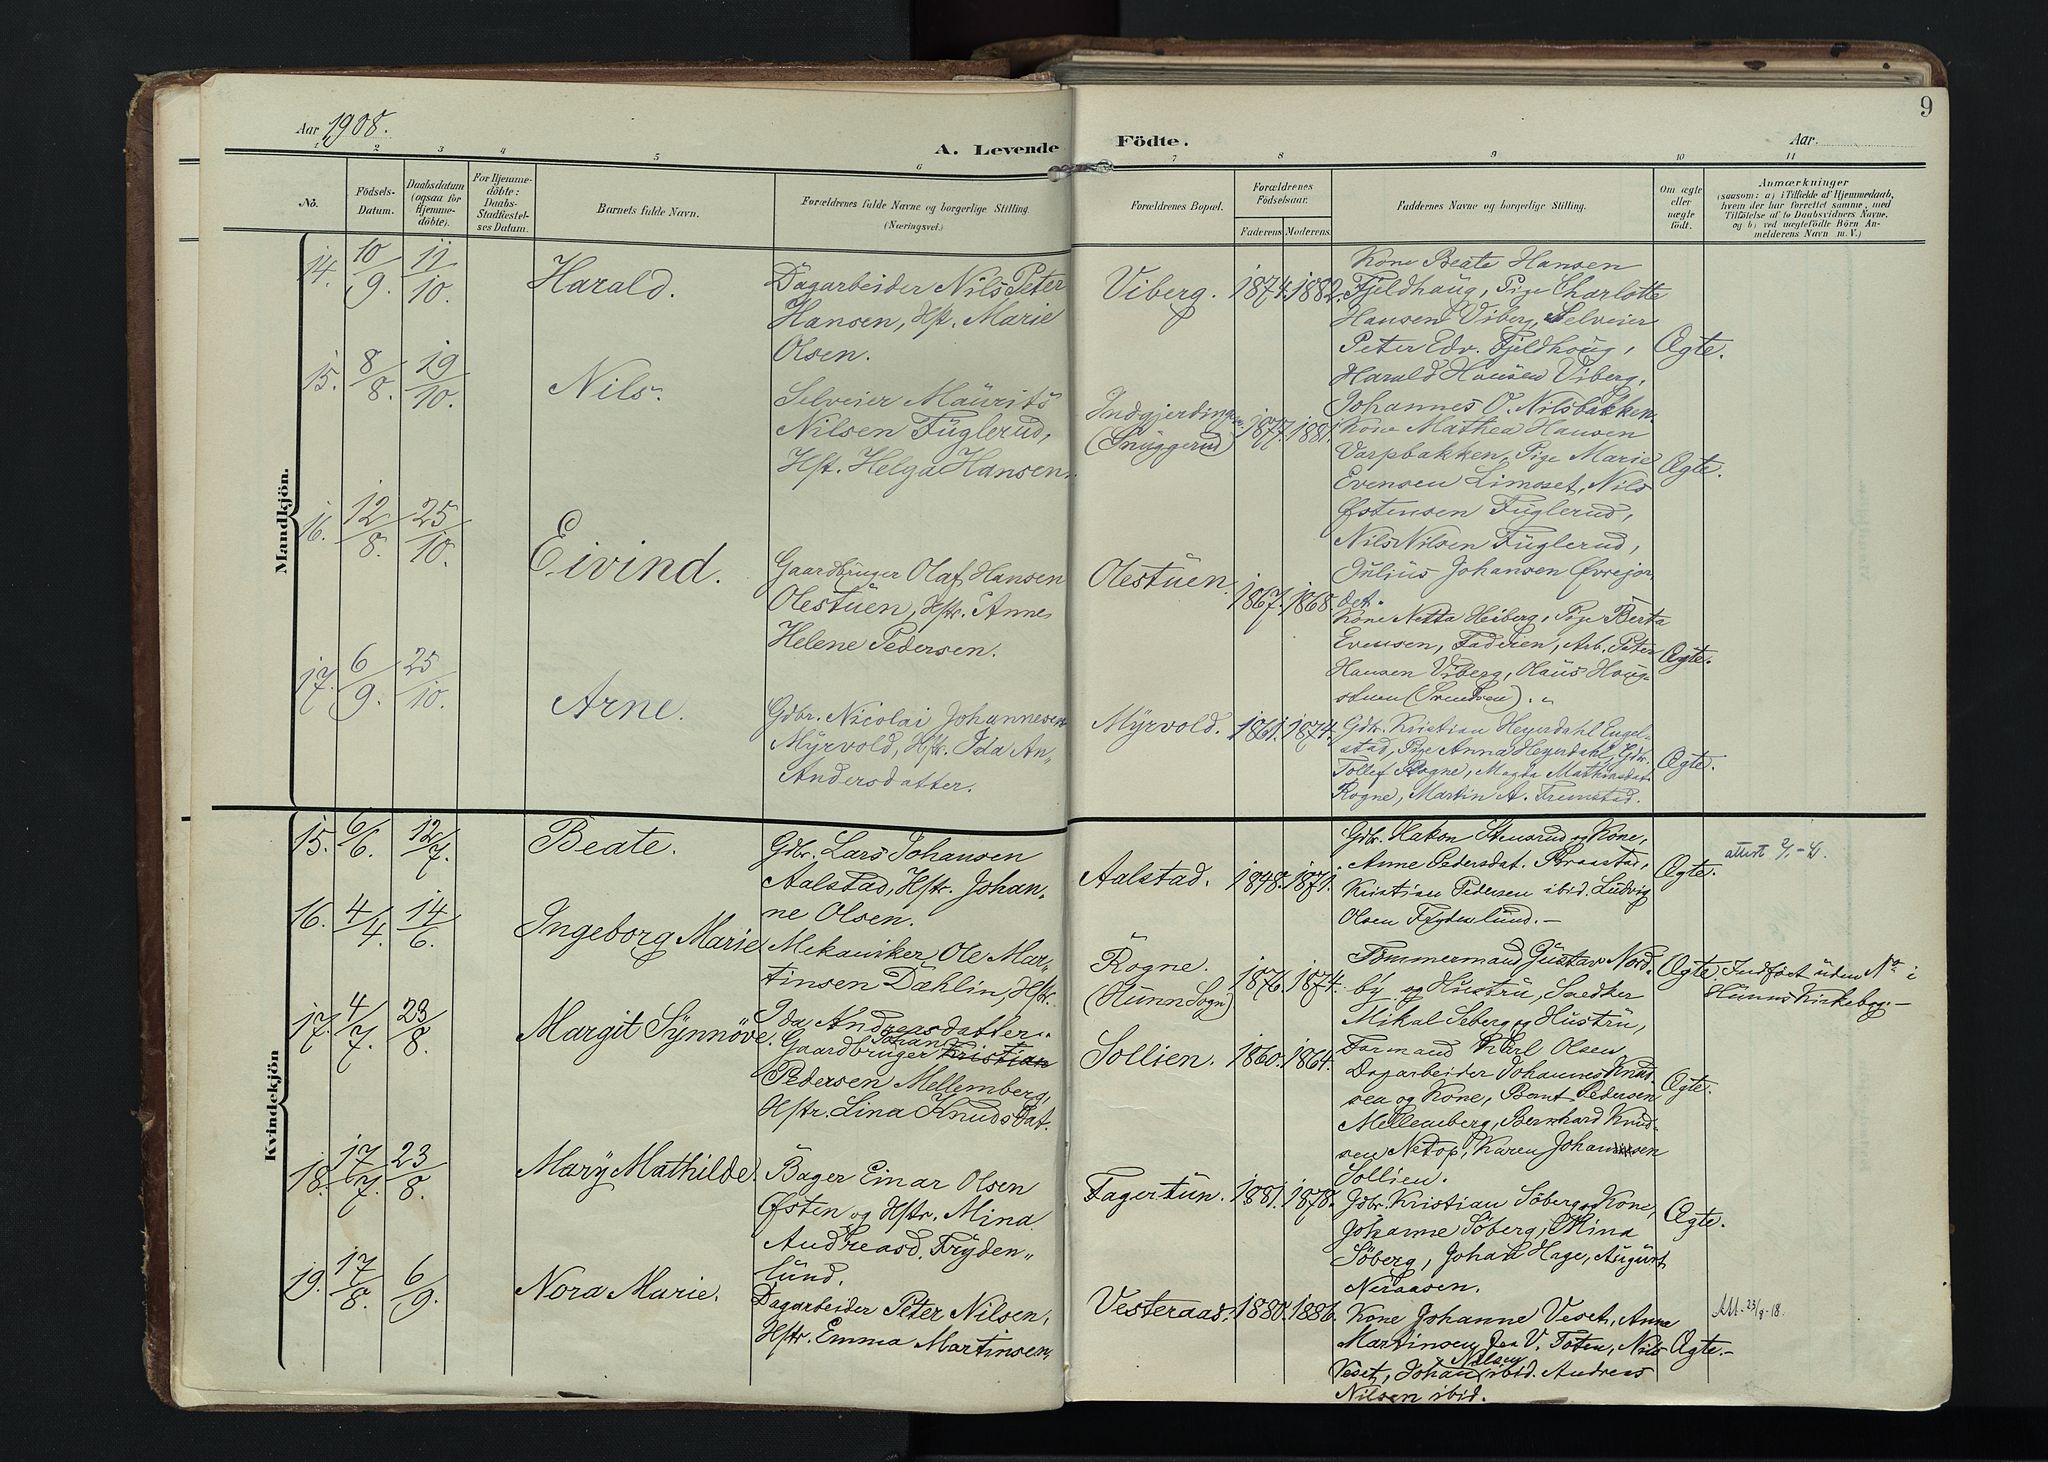 Aar 1908.
A. Levende Födte.
Aar
9
1 2 3 4 5 6 7 8 9 10 11
No.
Födsels-Datum.
Daabsdatum (ogsaa for Hjemmedöbte).
For Hjemmedöbte: Daabs-Stadfæstelses Datum.
Barnets fulde Navn.
Forældrenes fulde Navne og borgerlige Stilling. (Næringsvei.)
Forældrenes Bopæl.
Forældrenes Födselsaar. Faderens. Moderens.
Faddernes Navne og borgerlige Stilling.
Om ægte eller uægte födt.
Anmærkninger (saasom: a) i Tilfælde af Hjemmedaab, hvem der har forrettet samme, med Tilföielse af to Daabsvidners Navne, og b) ved uægtefödte Börn Anmelderens Navn m. V.)
Mandkjön.
14. 10/9. 11/10. Harald.
Dagarbeider Nils Peter
Hansen, Hst. Marie
Olsen.
Viberg. 1874. 1882.
Kone Beate Hansen
Fjeldhaug, Pige Charlotte
Hansen Viberg, Selveier
Peter Edv. Fjeldhoug,
Harald Hansen Viberg,
Johannes O. Nilsbakken.
Ægte.
15. 8/8. 19/10. Nils.
Selveier Maurits
Nilsen Fuglerud,
Hst. Helga Hansen.
Indgjerdingen
(Snuggerud) 1877. 1881.
Kone Mathea Hansen
Varpbakken, Pige Marie
Evensen Limoset, Nils
Østensen Fuglerud,
Nils Nilsen Fuglerud,
Julius Johansen Øvrejor
det.
Ægte.
16. 12/8. 25/10. Eivind.
Gaardbruger Olaf Hansen
Olestuen, Hstr. Anne
Helene Pedersen.
Olestuen. 1867. 1868.
Kone Netta Heiberg, Pige Berta
Evensen, Faderen, Arb. Peter
Hansen Viberg, Olaus Houg-
stuen (Svendsen).
Ægte.
17. 6/9. 25/10. Arne.
Gdbr. Nicolai Johannesen
Myrvold, Hstr. Ida An„
Andersdatter.
Myrvold. 1861. 1874.
Gdbr. Kristian Heyerdahl Engel-
stad, Pige Anna Heyerdahl, Gdbr.
Tollef Rogne, Magda Mathiasdat.
Rogne, Martin A. Fremstad.
Ægte.
Kvindekjön
15. 6/6. 12/7. Beate.
Gdbr. Lars Johansen
Aalstad, Hstr. Johan„
ne Olsen.
Aalstad. 1848. 1871.
Gdbr. Hakon Stensrud og Kone,
Anne Pedersdat. Braastad,
Kristian Pedersen ibid. Ludvig
Olsen Frydenlund.-
Ægte.
16. 4/4. 14/6. Ingeborg Marie
Mekaniker Ole Mar„
tinsen Dæhlin, Hstr.
Ida Andreasdatter.
Rogne.
(Hunn Sogn) 1876. 1874.
Tömmermand Gustav Nord-
by og Hustru, Snedker
Mikal Seberg og Hustru,
Formand Karl Olsen
Ægte Indföst uden No i
Hunns Kirkebog.-
17. 4/7. 23/8. Margit Synnöve.
Gaardbruger Johan Kristian
Pedersen Mellemberg,
Hstr. Lina Knudsdat.
Sollien. 1860. 1864.
Dagarbeider Johannes Knud
sen og Kone, Bernt Pedersen
Mellemberg, Bernhard Knud-
sen Netop, Karen Johansen
Sollien.
Ægte.
18. 17/7. 23/8. Mary Mathilde.
Bager Einar Olsen
Østen og Hstr. Mina
Andreasd. Fryden„
lund.
Fagertun. 1881. 1878.
Gdbr. Kristian Söberg og Kone,
Johanne Söberg, Mina
Söberg, Johan Hage, August
Neraasen.
Ægte.
19. 17/8. 6/9. Nora Marie.
Dagarbeider Peter Nilsen,
Hstr. Emma Martinsen.
Vesteraas. 1880. 1886.
Kone Johanne Veset, Anne
Martinsen fra V. Toten, Nils
Veset, Johan Nilsen ibid. Andreas
Nilsen ibid.
Ægte.-
Att. 23/8-18.